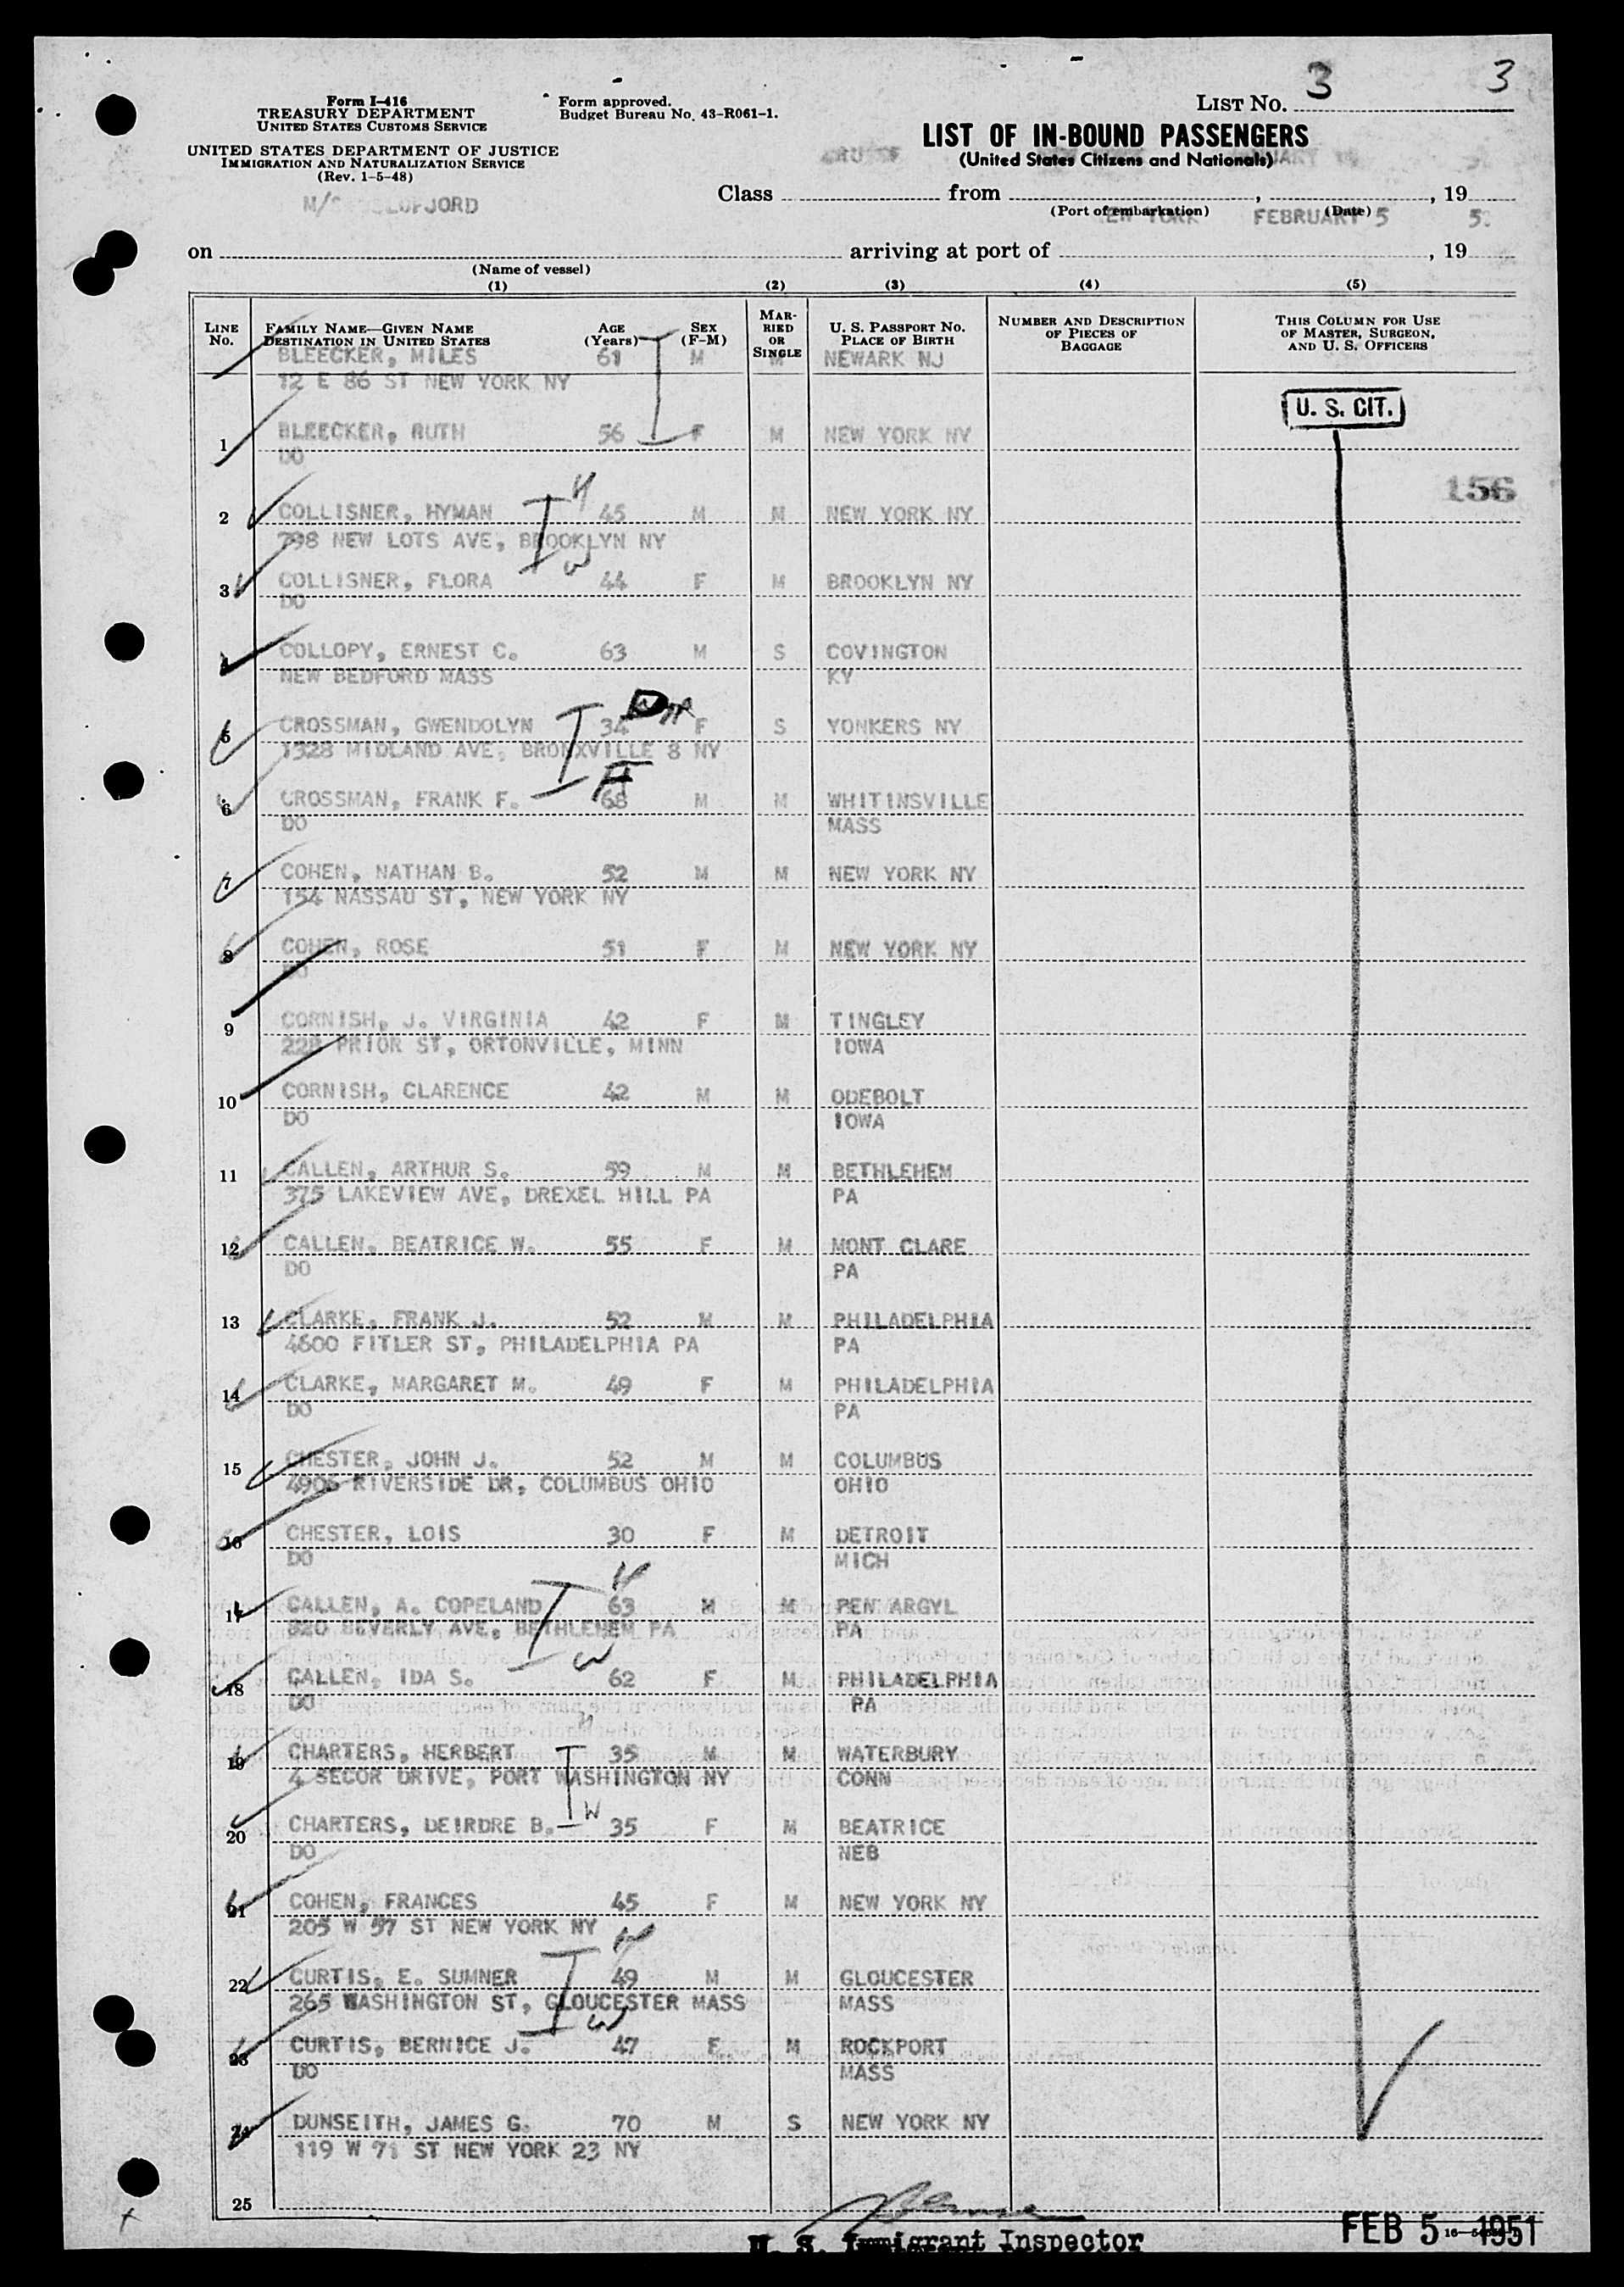 3
3
Form I-416
TREASURY DEPARTMENT
UNITED STATES CUSTOMS SERVICE
UNITED STATES DEPARTMENT OF JUSTICE
IMMIGRATION AND NATURALIZATION SERVICE
(Rev. 1-5-48)
Form approved.
Budget Bureau No. 43-R061-1.
LIST NO.
LIST OF IN-BOUND PASSENGERS
(United States Citizens and Nationals)
Class from , , 19
(Port of embarkation) (Date)
YORK FEBRUARY 5
on arriving at port of , 19
(Name of vessel)
(1) (2) (3) (4) (5)
LINE NO. FAMILY NAME—GIVEN NAME DESTINATION IN UNITED STATES AGE (Years) SEX (F-M) MARRIED OR SINGLE U. S. PASSPORT NO. PLACE OF BIRTH NUMBER AND DESCRIPTION OF PIECES OF BAGGAGE THIS COLUMN FOR USE OF MASTER, SURGEON, AND U. S. OFFICERS
BLEECKER, MILES 61 M M NEWARK NJ
12 E 86 ST NEW YORK NY
U. S. CIT.
1 BLEECKER, RUTH 56 F M NEW YORK NY
DO
156
2 COLLISNER, HYMAN H 45 M M NEW YORK NY
798 NEW LOTS AVE, BROOKLYN NY
W
3 COLLISNER, FLORA 44 F M BROOKLYN NY
DO
4 COLLOPY, ERNEST C. 63 M S COVINGTON
NEW BEDFORD MASS KY
5 CROSSMAN, GWENDOLYN 34 F S YONKERS NY
1328 MIDLAND AVE, BRONXVILLE 8 NY
6 CROSSMAN, FRANK F. 68 M M WHITINSVILLE
DO MASS
7 COHEN, NATHAN B. 52 M M NEW YORK NY
154 NASSAU ST, NEW YORK NY
8 COHEN, ROSE 51 F M NEW YORK NY
DO
9 CORNISH, J. VIRGINIA 42 F M TINGLEY
228 PRIOR ST, ORTONVILLE, MINN IOWA
10 CORNISH, CLARENCE 42 M M ODEBOLT
DO IOWA
11 CALLEN, ARTHUR S. 59 M M BETHLEHEM
375 LAKEVIEW AVE, DREXEL HILL PA PA
12 CALLEN, BEATRICE W. 55 F M MONT CLARE
DO PA
13 CLARKE, FRANK J. 52 M M PHILADELPHIA
4600 FITLER ST, PHILADELPHIA PA PA
14 CLARKE, MARGARET M. 49 F M PHILADELPHIA
DO PA
15 CHESTER, JOHN J. 52 M M COLUMBUS
4906 RIVERSIDE DR, COLUMBUS OHIO OHIO
16 CHESTER, LOIS 30 F M DETROIT
DO MICH
17 CALLEN, A. COPELAND H 63 M M PEN ARGYL
820 BEVERLY AVE, BETHLEHEM PA PA
W
18 CALLEN, IDA S. 62 F M PHILADELPHIA
DO PA
19 CHARTERS, HERBERT H 35 M M WATERBURY
4 SECOR DRIVE, PORT WASHINGTON NY CONN
W
20 CHARTERS, DEIRDRE B. 35 F M BEATRICE
DO NEB
21 COHEN, FRANCES 45 F M NEW YORK NY
205 W 57 ST NEW YORK NY
22 CURTIS, E. SUMNER H 49 M M GLOUCESTER
265 WASHINGTON ST, GLOUCESTER MASS MASS
W
23 CURTIS, BERNICE J. 47 F M ROCKPORT
DO MASS
24 DUNSEITH, JAMES G. 70 M S NEW YORK NY
119 W 71 ST NEW YORK 23 NY
25
U. S. Immigrant Inspector
FEB 5 1951